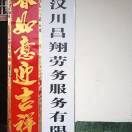 春如意迎吉祥
汶川昌翔劳务服务有限